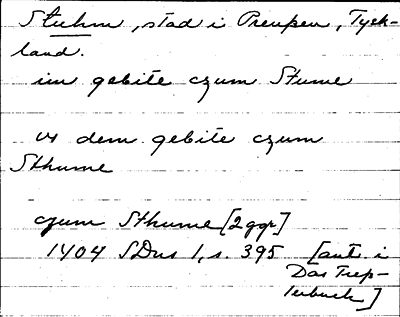 Stuhm, stad i Preupen, Tysk-
land.
im gebite czum Stume
us dem gebite czum
Sthume
czum Sthume [2 ggr]
1404 SDns 1, s. 395 [ant. i
Das Trep-
lerbuch]